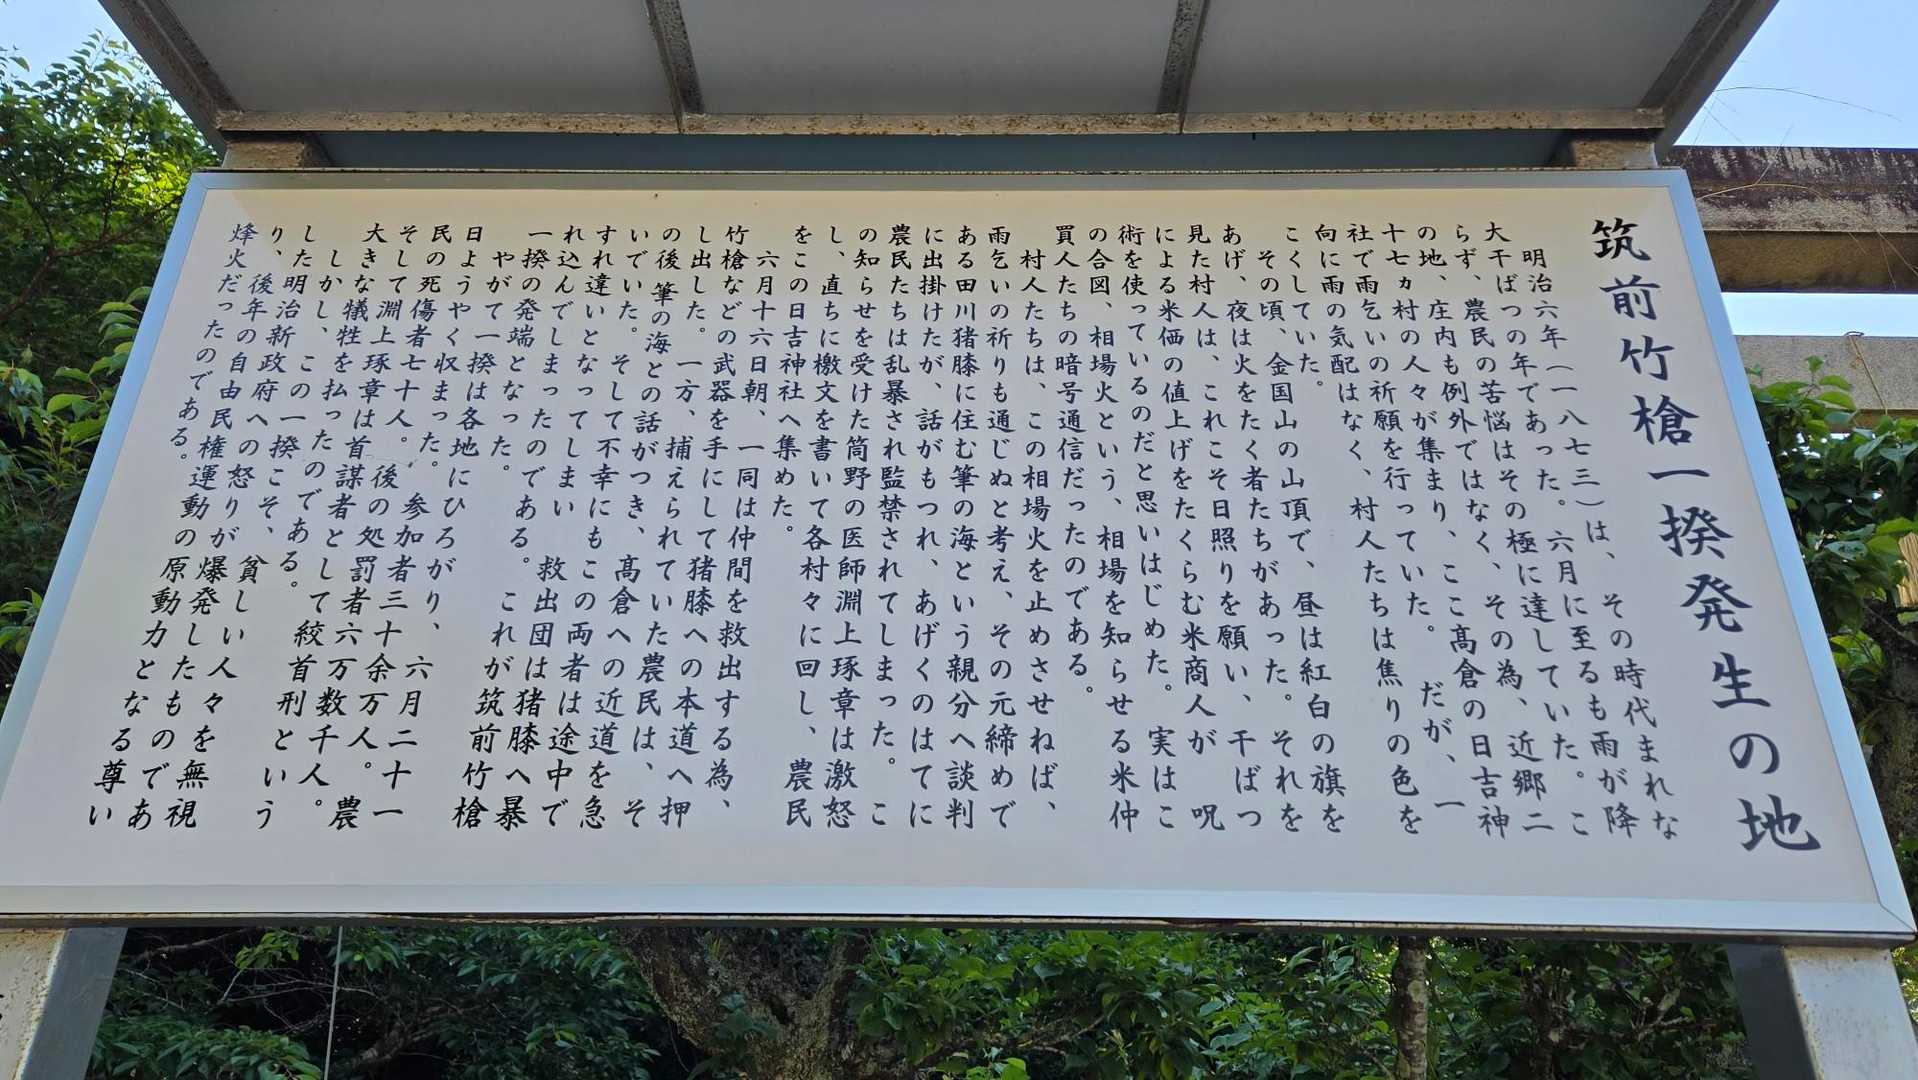 筑前竹槍一揆発生の地
明治六年（一八七三）は、その時代まれな
大干ばつの年であった。六月に至るも雨が降
らず、農民の苦悩はその極に達していた。こ
の地、庄内も例外ではなく、その為、近郷二
十七ヵ村の人々が集まり、ここ髙倉の日吉神
社で雨乞いの祈願を行っていた。だが、一
向に雨の気配はなく、村人たちは焦りの色を
こくしていた。
その頃、金国山の山頂で、昼は紅白の旗を
あげ、夜は火をたく者たちがあった。それを
見た村人は、これこそ日照りを願い、干ばつ
による米価の値上げをたくらむ米商人が呪
術を使っているのだと思いはじめた。実はこ
の合図、相場火という、相場を知らせる米仲
買人たちの暗号通信だったのである。
村人たちは、この相場火を止めさせねば、
雨乞いの祈りも通じぬと考え、その元締めで
ある田川猪膝に住む筆の海という親分へ談判
に出掛けたが、話がもつれ、あげくのはてに
農民たちは乱暴され監禁されてしまった。こ
の知らせを受けた筒野の医師淵上琢章は激怒
し、直ちに檄文を書いて各村々に回し、農民
をこの日吉神社へ集めた。
六月十六日朝、一同は仲間を救出する為、
竹槍などの武器を手にして猪膝への本道へ押
し出した。一方、捕えられていた農民は、そ
の後筆の海との話がつき、髙倉への近道を急
いでいた。そして不幸にもこの両者は途中で
すれ違いとなってしまい、救出団は猪膝へ暴
れ込んでしまったのである。これが筑前竹槍
一揆の発端となった。
やがて一揆は各地にひろがり、六月二十一
日ようやく収まった。参加者三十余万人。農
民の死傷者七十人。後の処罰者六万数千人。
そして淵上琢章は首謀者として絞首刑という
大きな犠牲を払ったのである。
しかし、この一揆こそ、貧しい人々を無視
した明治新政府への怒りが爆発したものであ
り、後年の自由民権運動の原動力となる尊い
烽火だったのである。